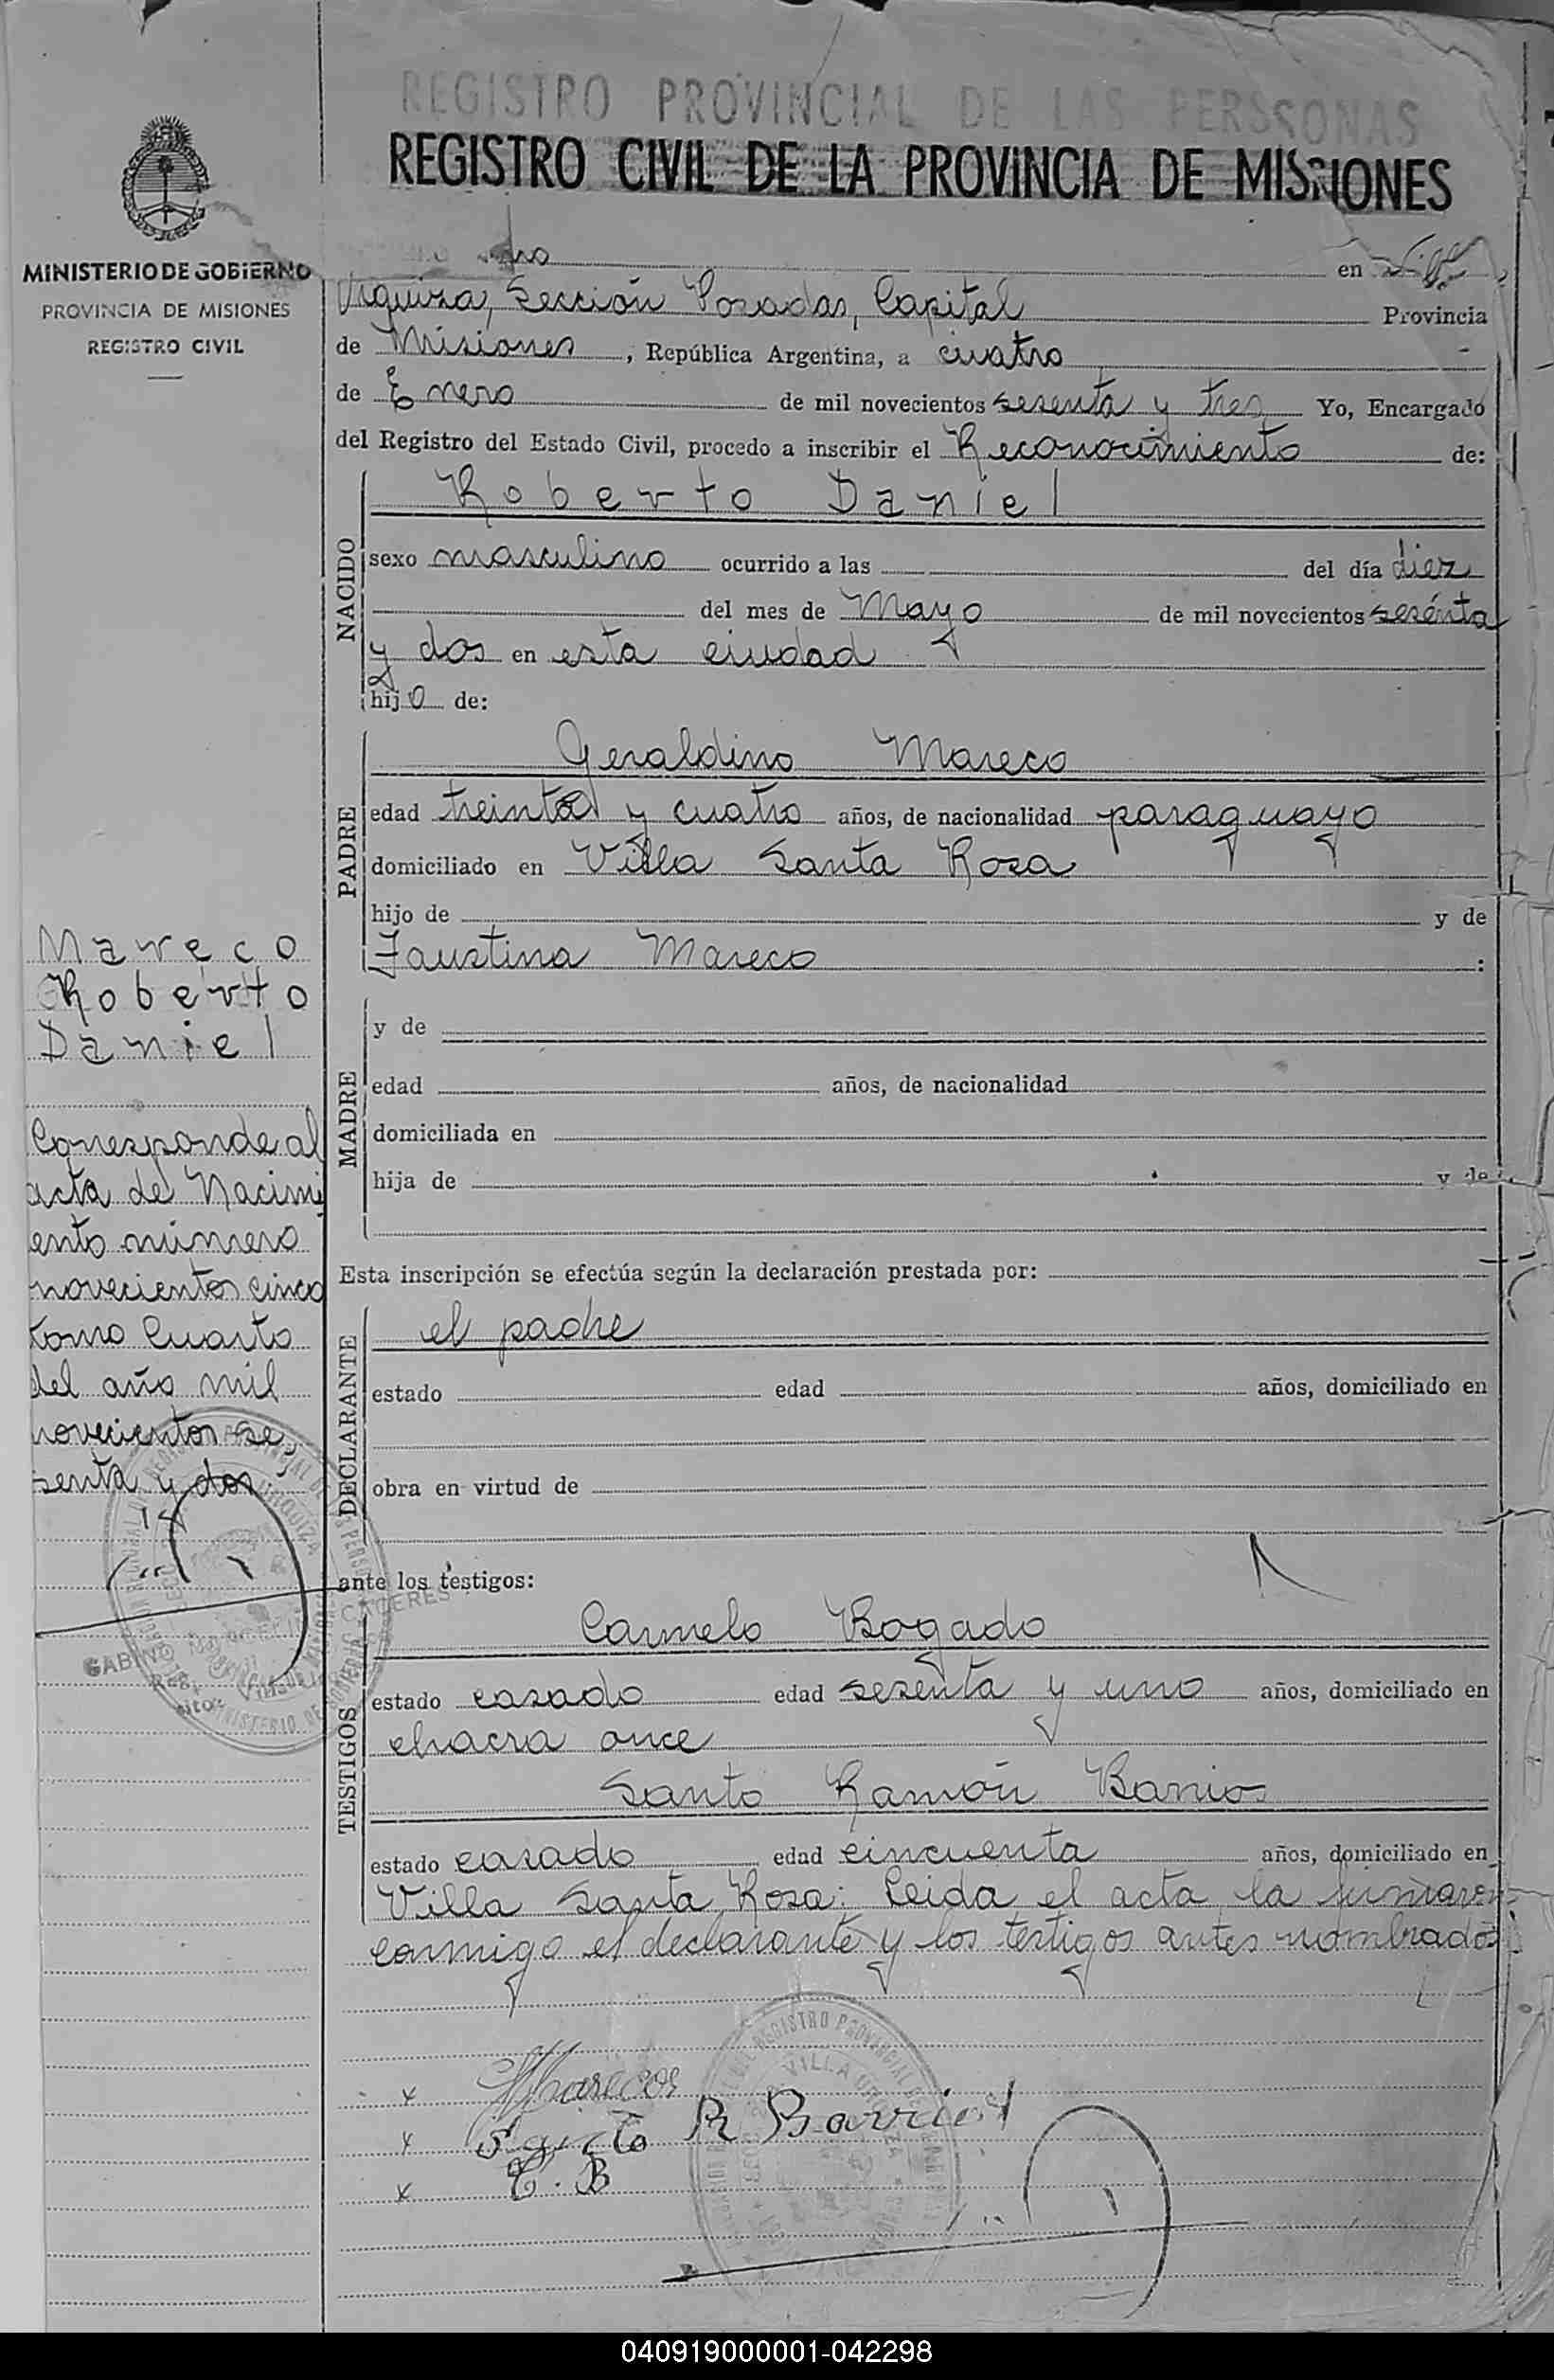 REGISTRO PROVINCIAL DE LAS PERSONAS
REGISTRO CIVIL DE LA PROVINCIA DE MISIONES
MINISTERIO DE GOBIERNO
PROVINCIA DE MISIONES
REGISTRO CIVIL
en Villa
Urquiza, Sección Posadas, Capital Provincia
de Misiones, República Argentina, a cuatro
de Enero de mil novecientos sesenta y tres Yo, Encargado
del Registro del Estado Civil, procedo a inscribir el Reconocimiento de:
NACIDO
Roberto Daniel
sexo masculino ocurrido a las del día diez
del mes de Mayo de mil novecientos sesenta
y dos en esta ciudad
hijo de:
PADRE
Geraldino Mareco
edad treinta y cuatro años, de nacionalidad paraguayo
domiciliado en Villa Santa Rosa
hijo de y de
Faustina Mareco :
MADRE
y de
edad años, de nacionalidad
domiciliada en
hija de y de
Esta inscripción se efectúa según la declaración prestada por:
DECLARANTE
el padre
estado edad años, domiciliado en
obra en virtud de
ante los testigos:
TESTIGOS
Carmelo Bogado
estado casado edad sesenta y uno años, domiciliado en
chacra once
Santo Ramón Barrios
estado casado edad cincuenta años, domiciliado en
Villa Santa Rosa: Leida el acta la firmaron
conmigo el declarante y los testigos antes nombrados
x Marecos
x Santo R Barrios
x C. B
Mareco
Roberto
Daniel
Corresponde al
acta de Nacimi
ento número
novecientos cinco
tomo Cuarto
del año mil
novecientos se
senta y dos.
CACERES
040919000001-042298